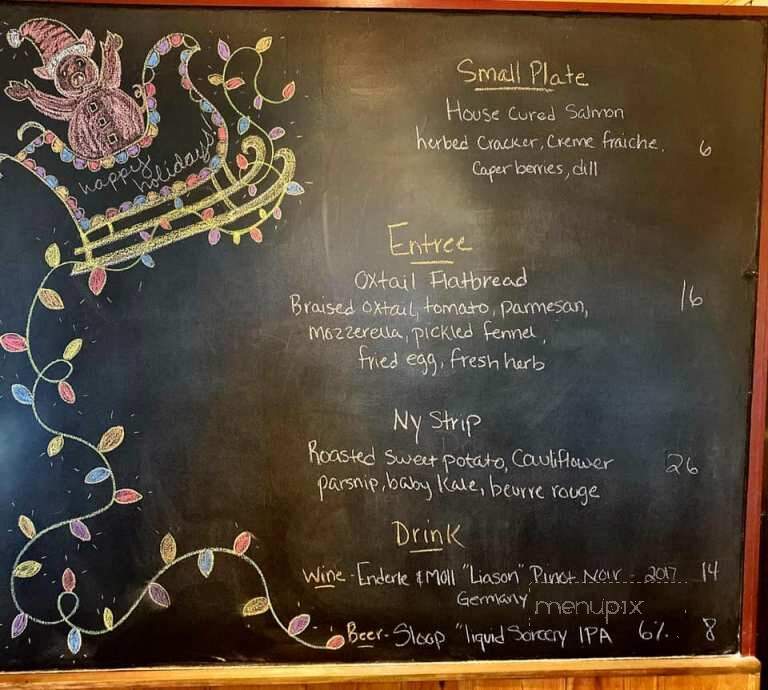 happy
holidays!
Small Plate
House Cured Salmon
herbed Cracker, Creme fraiche, 6
Caper berries, dill
Entree
Oxtail Flatbread
Braised oxtail, tomato, parmesan, 16
mozzerella, pickled fennel,
fried egg, fresh herb
Ny Strip
Roasted sweet potato, Cauliflower 26
parsnip, baby kale, beurre rouge
Drink
Wine - Enderle & Moll "Liason" Pinot Noir - 2017 14
Germany
menupix
Beer - Sloop "liquid Sorcery IPA 6%. 8